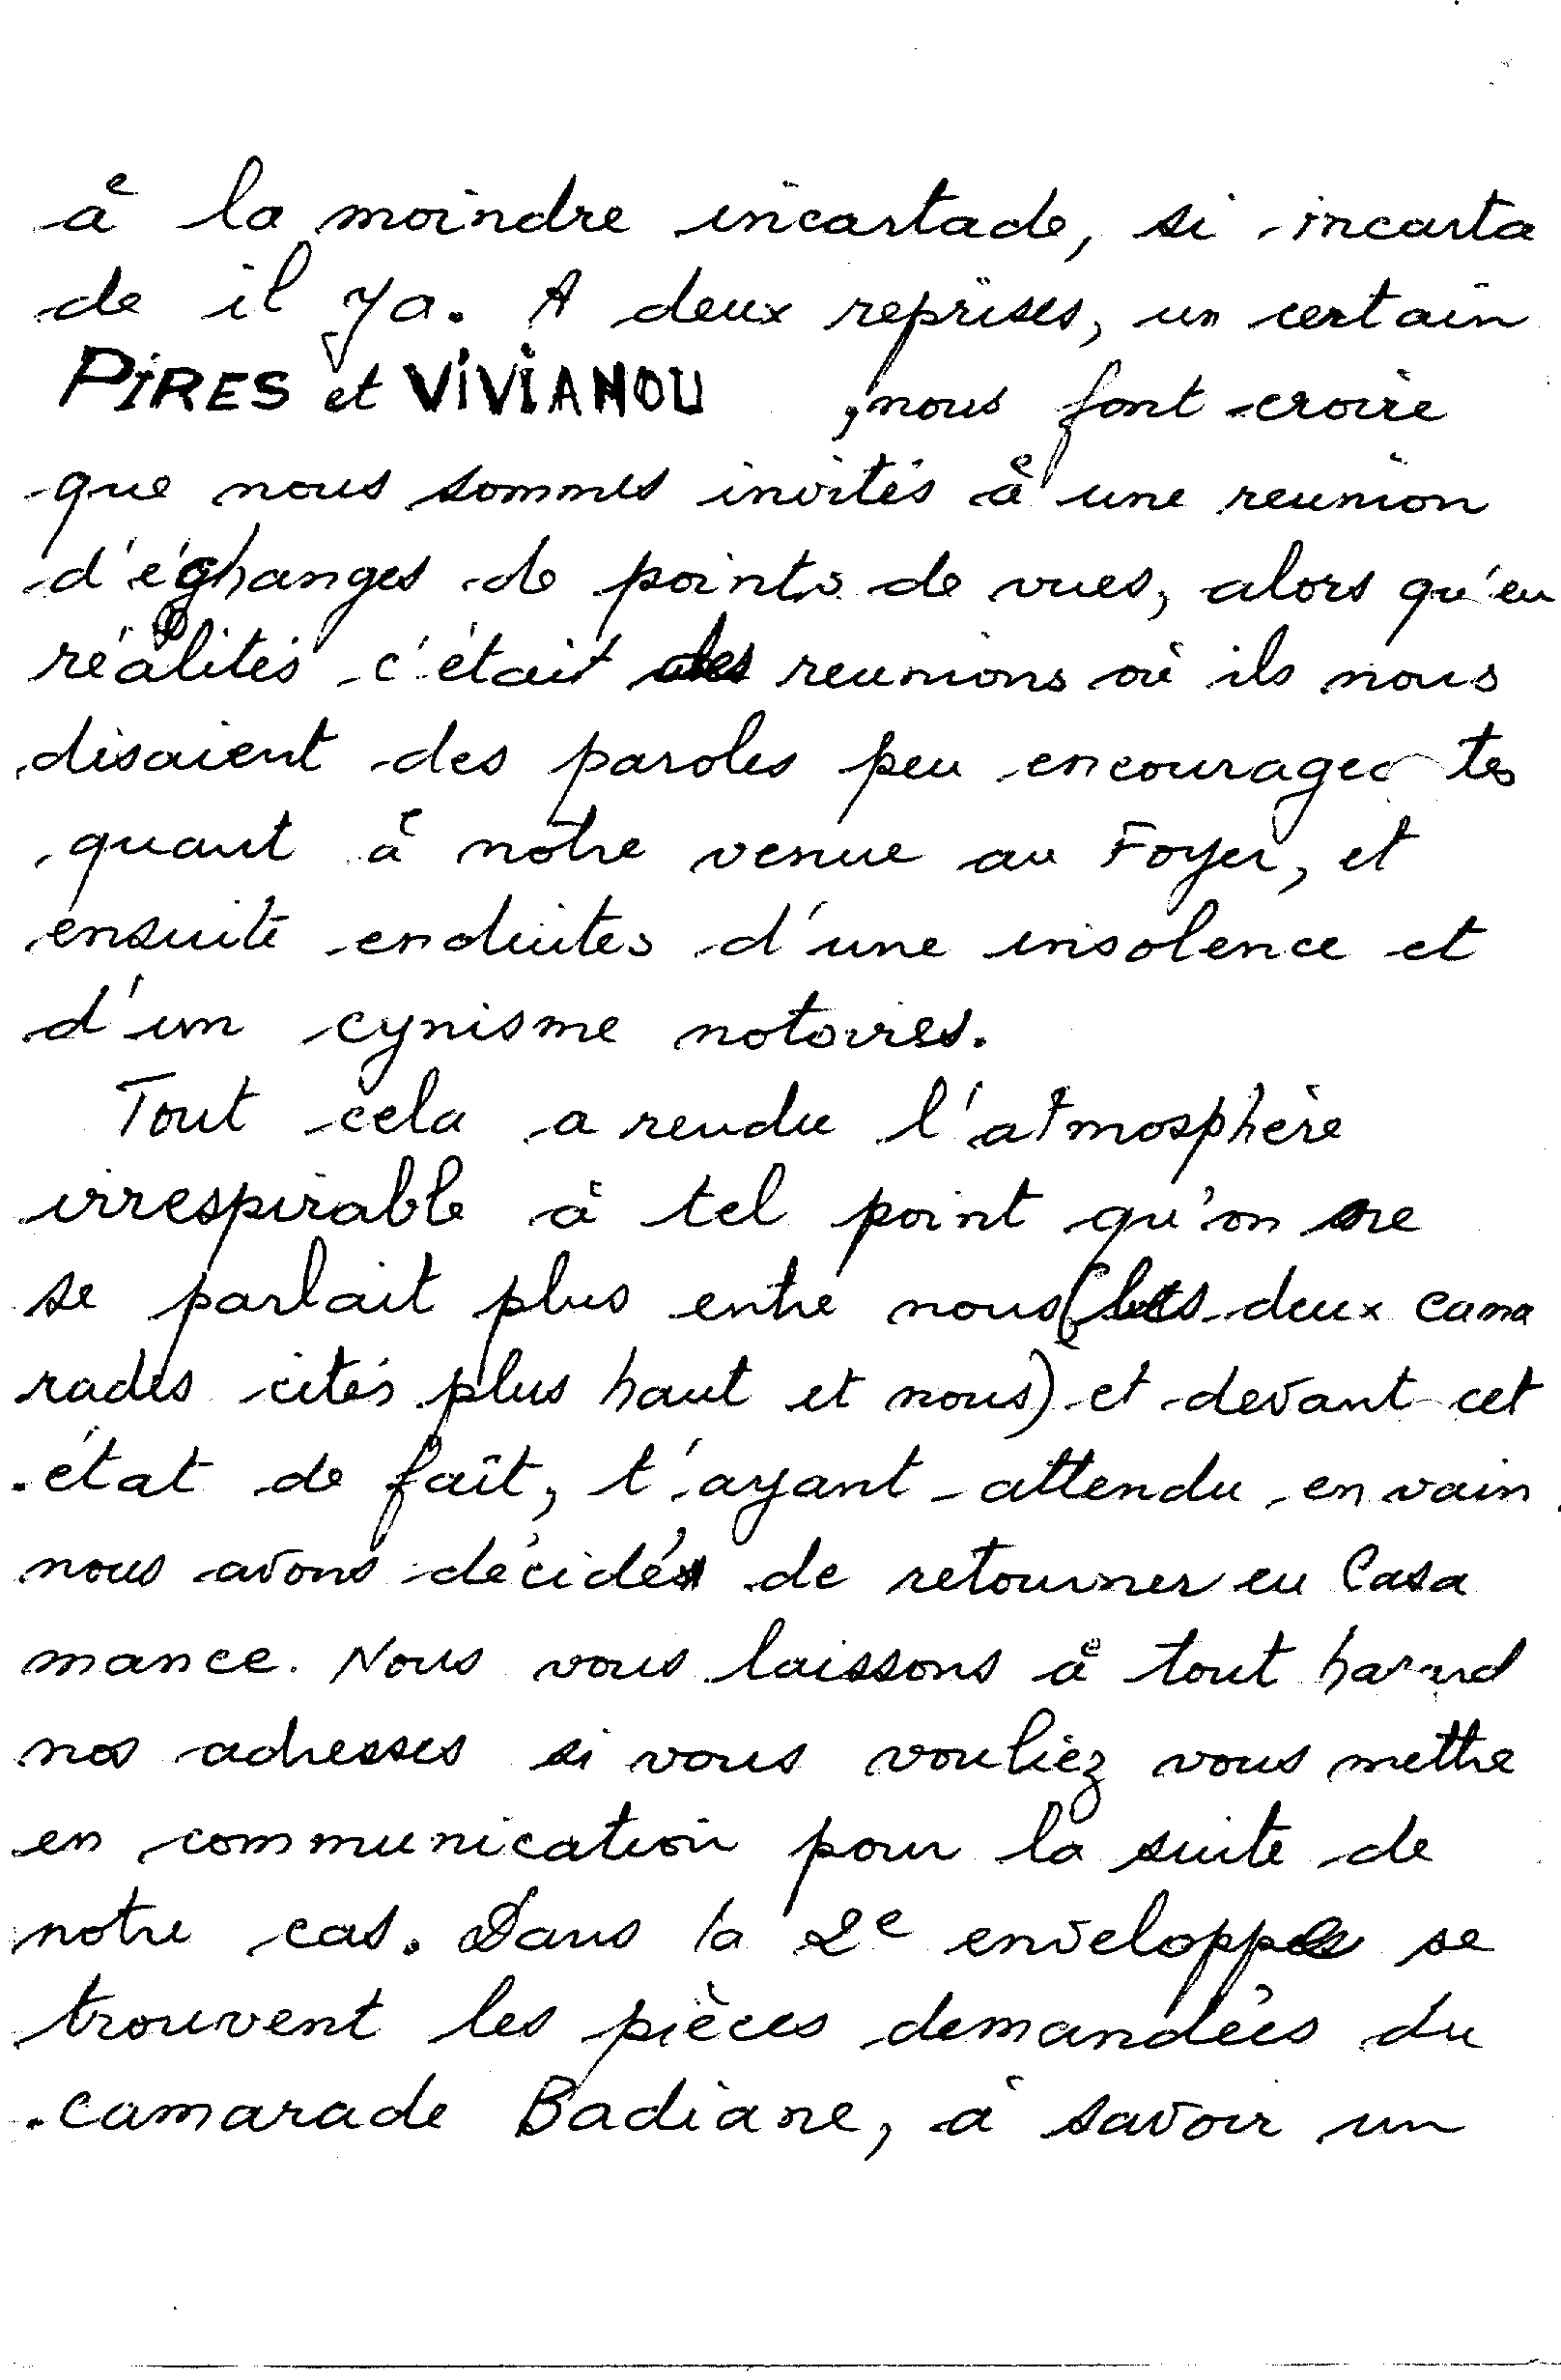 à la moindre incartade, si incarta
de il ya. A deux reprises, un certain
PIRES et VIVIANOU , nous font croire
que nous sommes invités à une reunion
d'échanges de points de vues, alors qu'en
réalités c'était des reunions où ils nous
disaient des paroles peu encourageantes
quant à notre venue au Foyer, et
ensuite enduites d'une insolence et
d'un cynisme notoires.
Tout cela a rendu l'atmosphère
irrespirable à tel point qu'on ne
se parlait plus entre nous (les deux cama
rades cités plus haut et nous) et devant cet
état de fait, t'ayant attendu en vain
nous avons décidé de retourner en Casa
mance. Nous vous laissons à tout hasard
nos adresses si vous vouliez vous mettre
en communication pour la suite de
notre cas. Dans la 2e enveloppe se
trouvent les pièces demandées du
camarade Badiane, à savoir un